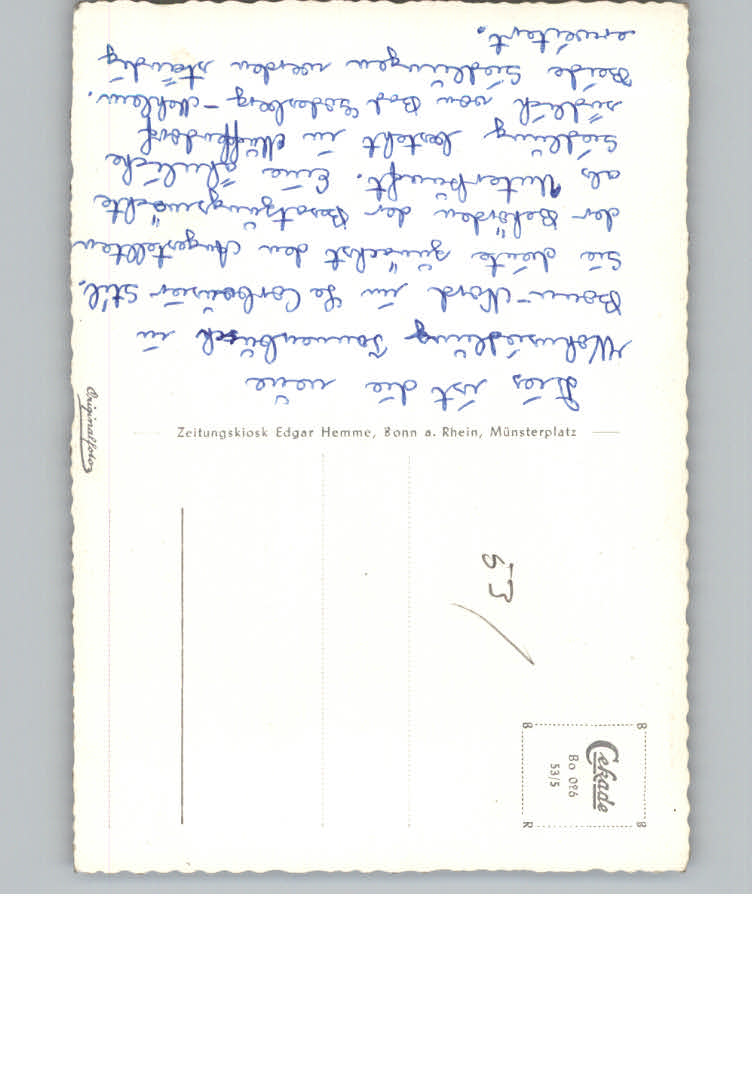 Dies ist die neue
Wohnsiedlung Tannenbusch in
Bonn-Nord im Le Corbousier Stil.
Sie diente zunächst den Angestellten
der Behörden der Besatzungsmächte
als Unterkunft. Eine ähnliche
Siedlung besteht in Muffendorf
südlich von Bad Godesberg-Mehlem.
Beide Siedlungen werden ständig
erweitert.
Zeitungskiosk Edgar Hemme, Bonn a. Rhein, Münsterplatz
Originalfoto
53/
Cekade
Bo 026
53/5
B
B
B
R